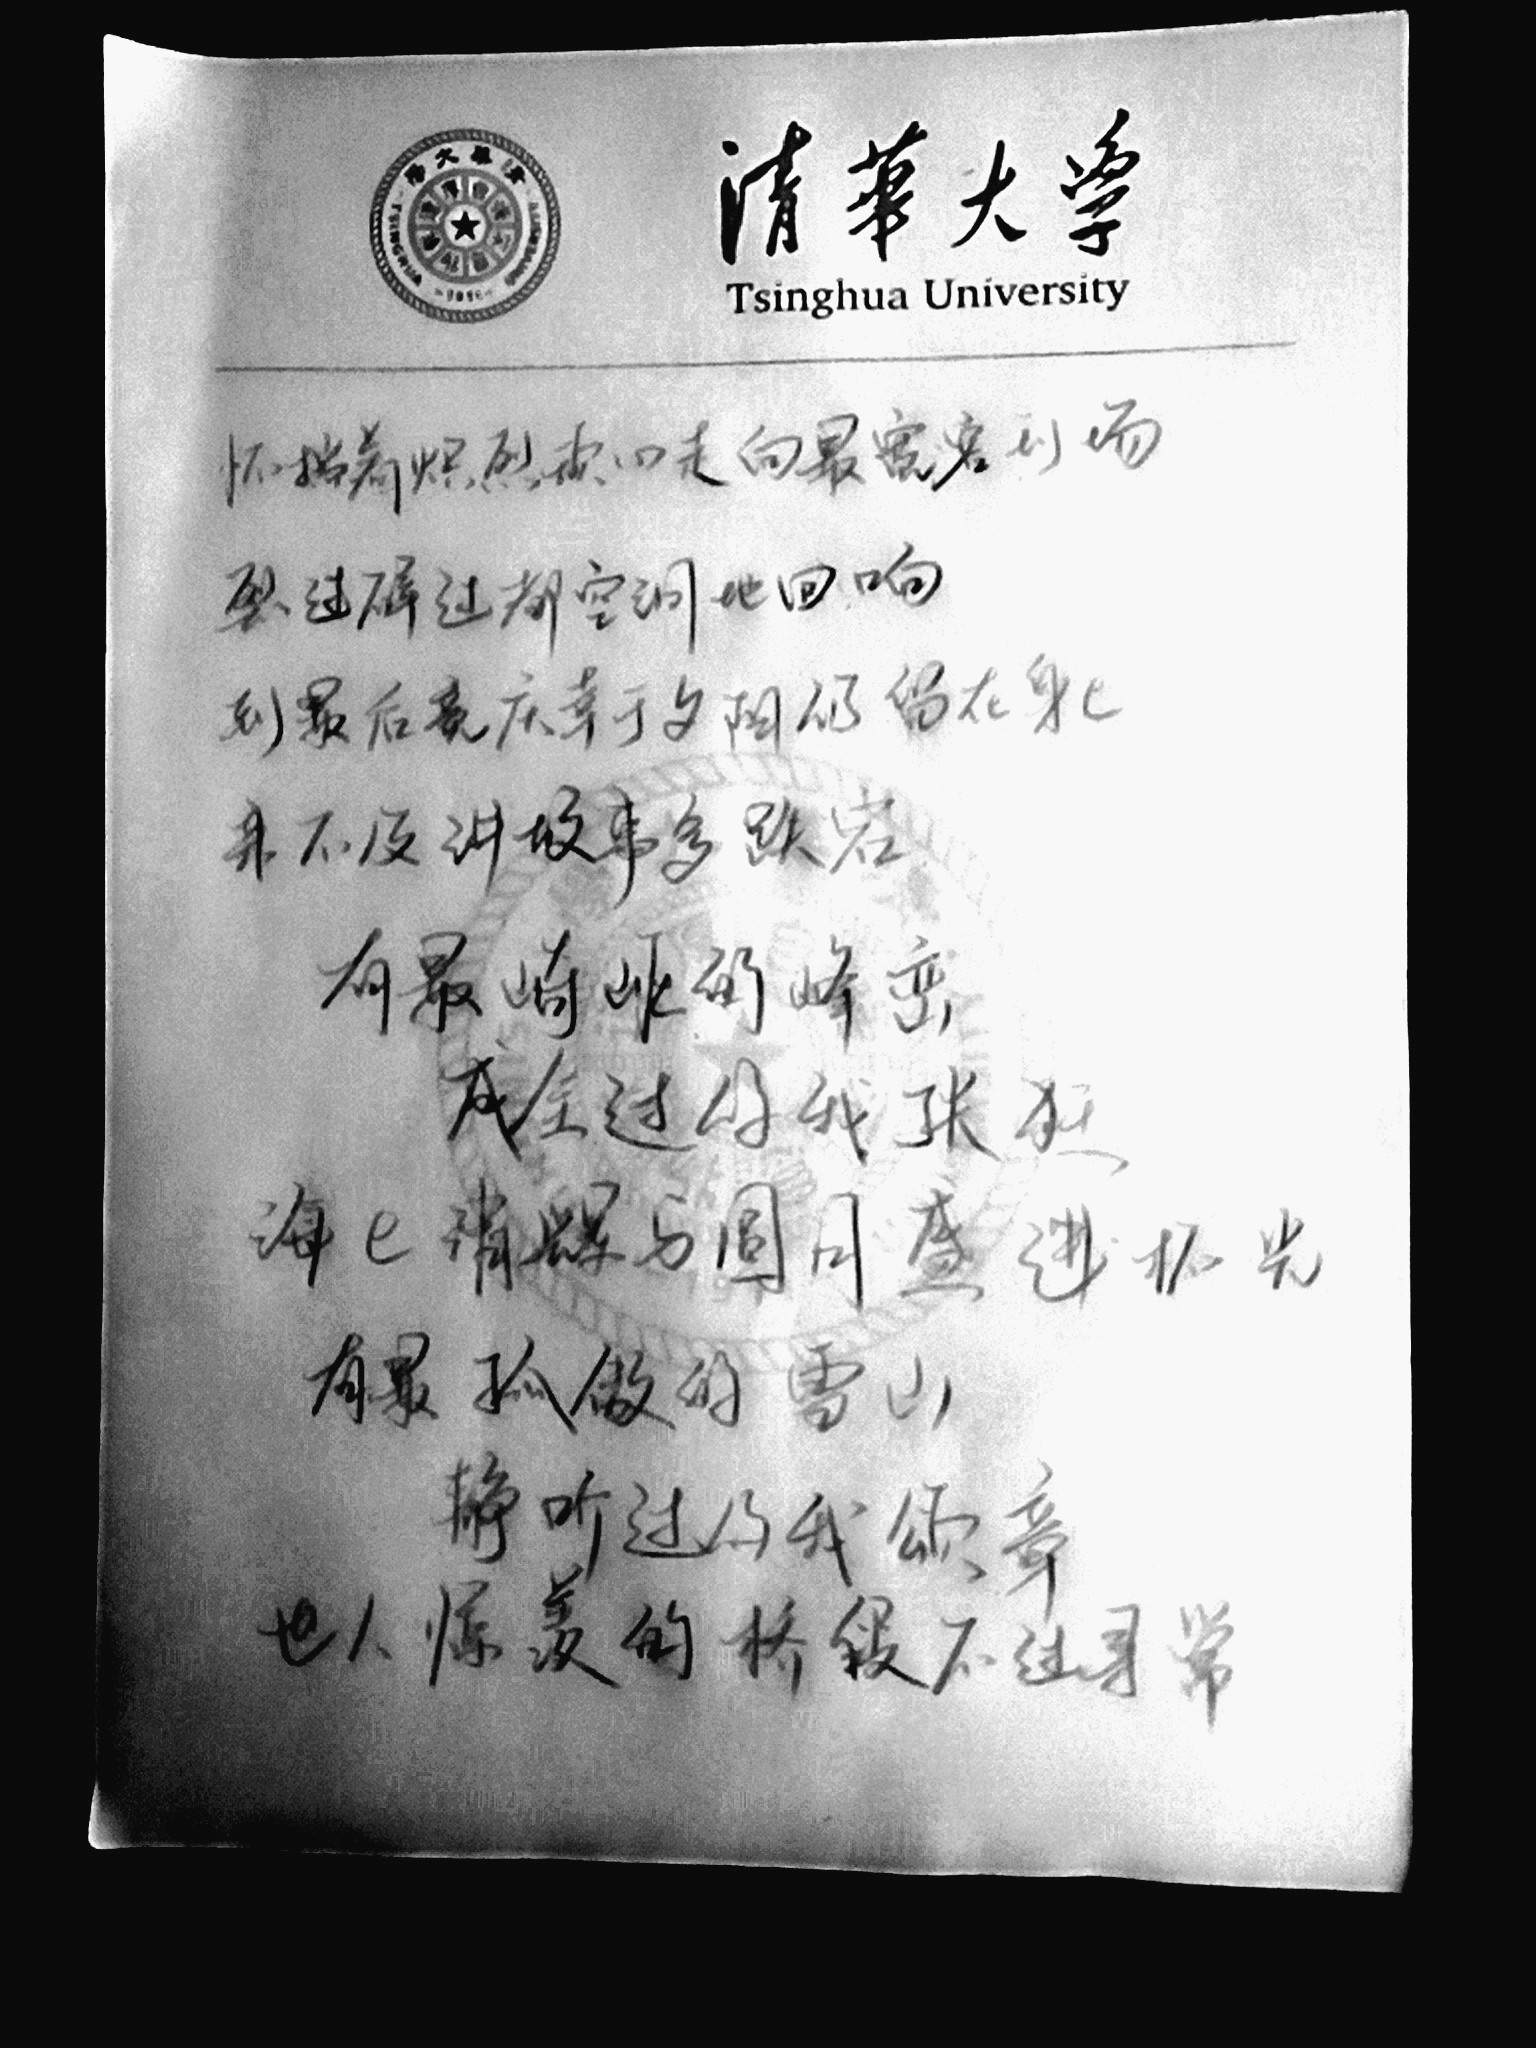 清華大学
Tsinghua University
怀揣着炽烈热心走向最寛宏刻场
裂过碎过都空洞地回响
到最后竟庆幸于夕阳仍留在身上
来不及讲故事多跌宕
有最崎岖的峰峦
成全过你我张狂
海上清辉与圆月盛进杯光
有最孤傲的雪山
静听过你我颂章
世人惊羡的桥段不过寻常